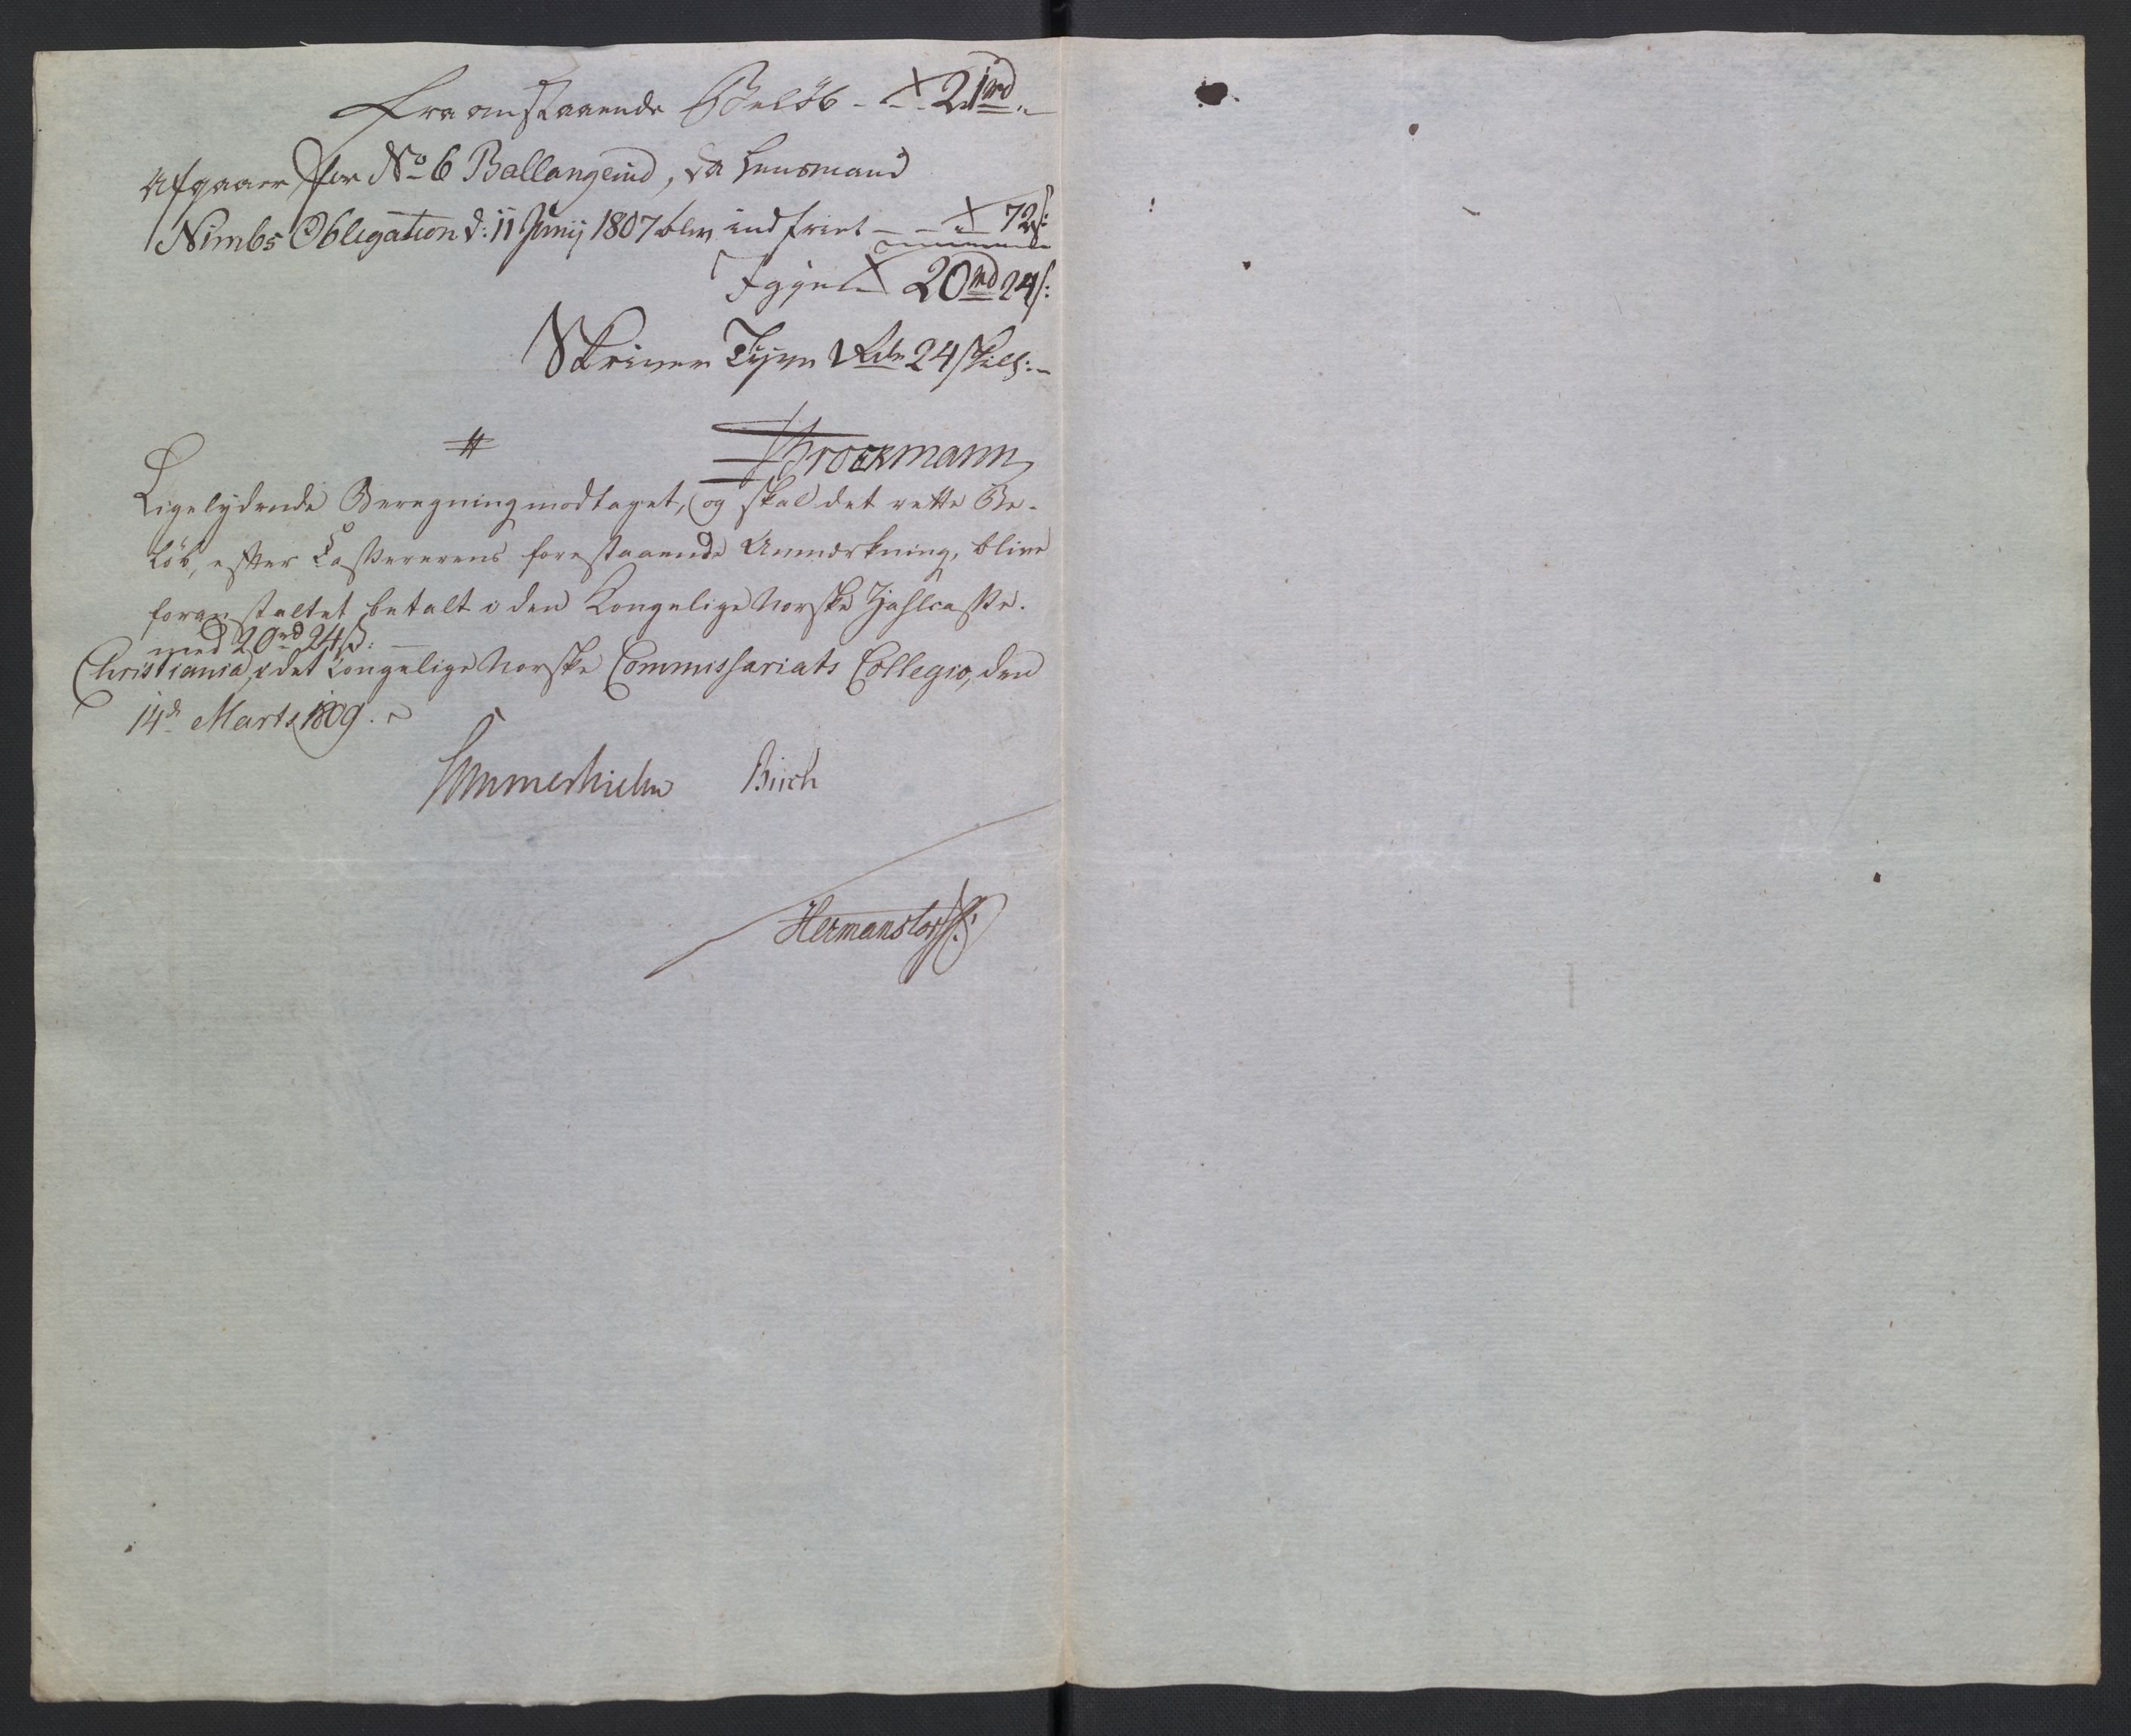 Fra omstaaende Beløb - - 21 rd „
Afgaaer for No 6 Ballangeiud, da Lensmand
Nimbs Obligation d: 11 Junij 1807 blev indfriet - - „ - 72 s:
Igjen 20 rd 24 s:
Skriver Tyve Rdr 24 Skill: -
Brockmann
Ligelydende Beregning modtaget, og skal det rette Be-
løb, efter Casserernens forestaaende Anmærkning, blive
foranstaltet betalt i den Kongelige Norske Zahlcasse.
med 20 rd 24 s: —
Christiania, i det Kongelige Norske Commissariats Collegio, den
14d Marts 1809.
Sommerhielm Birch
Hermanstorff: